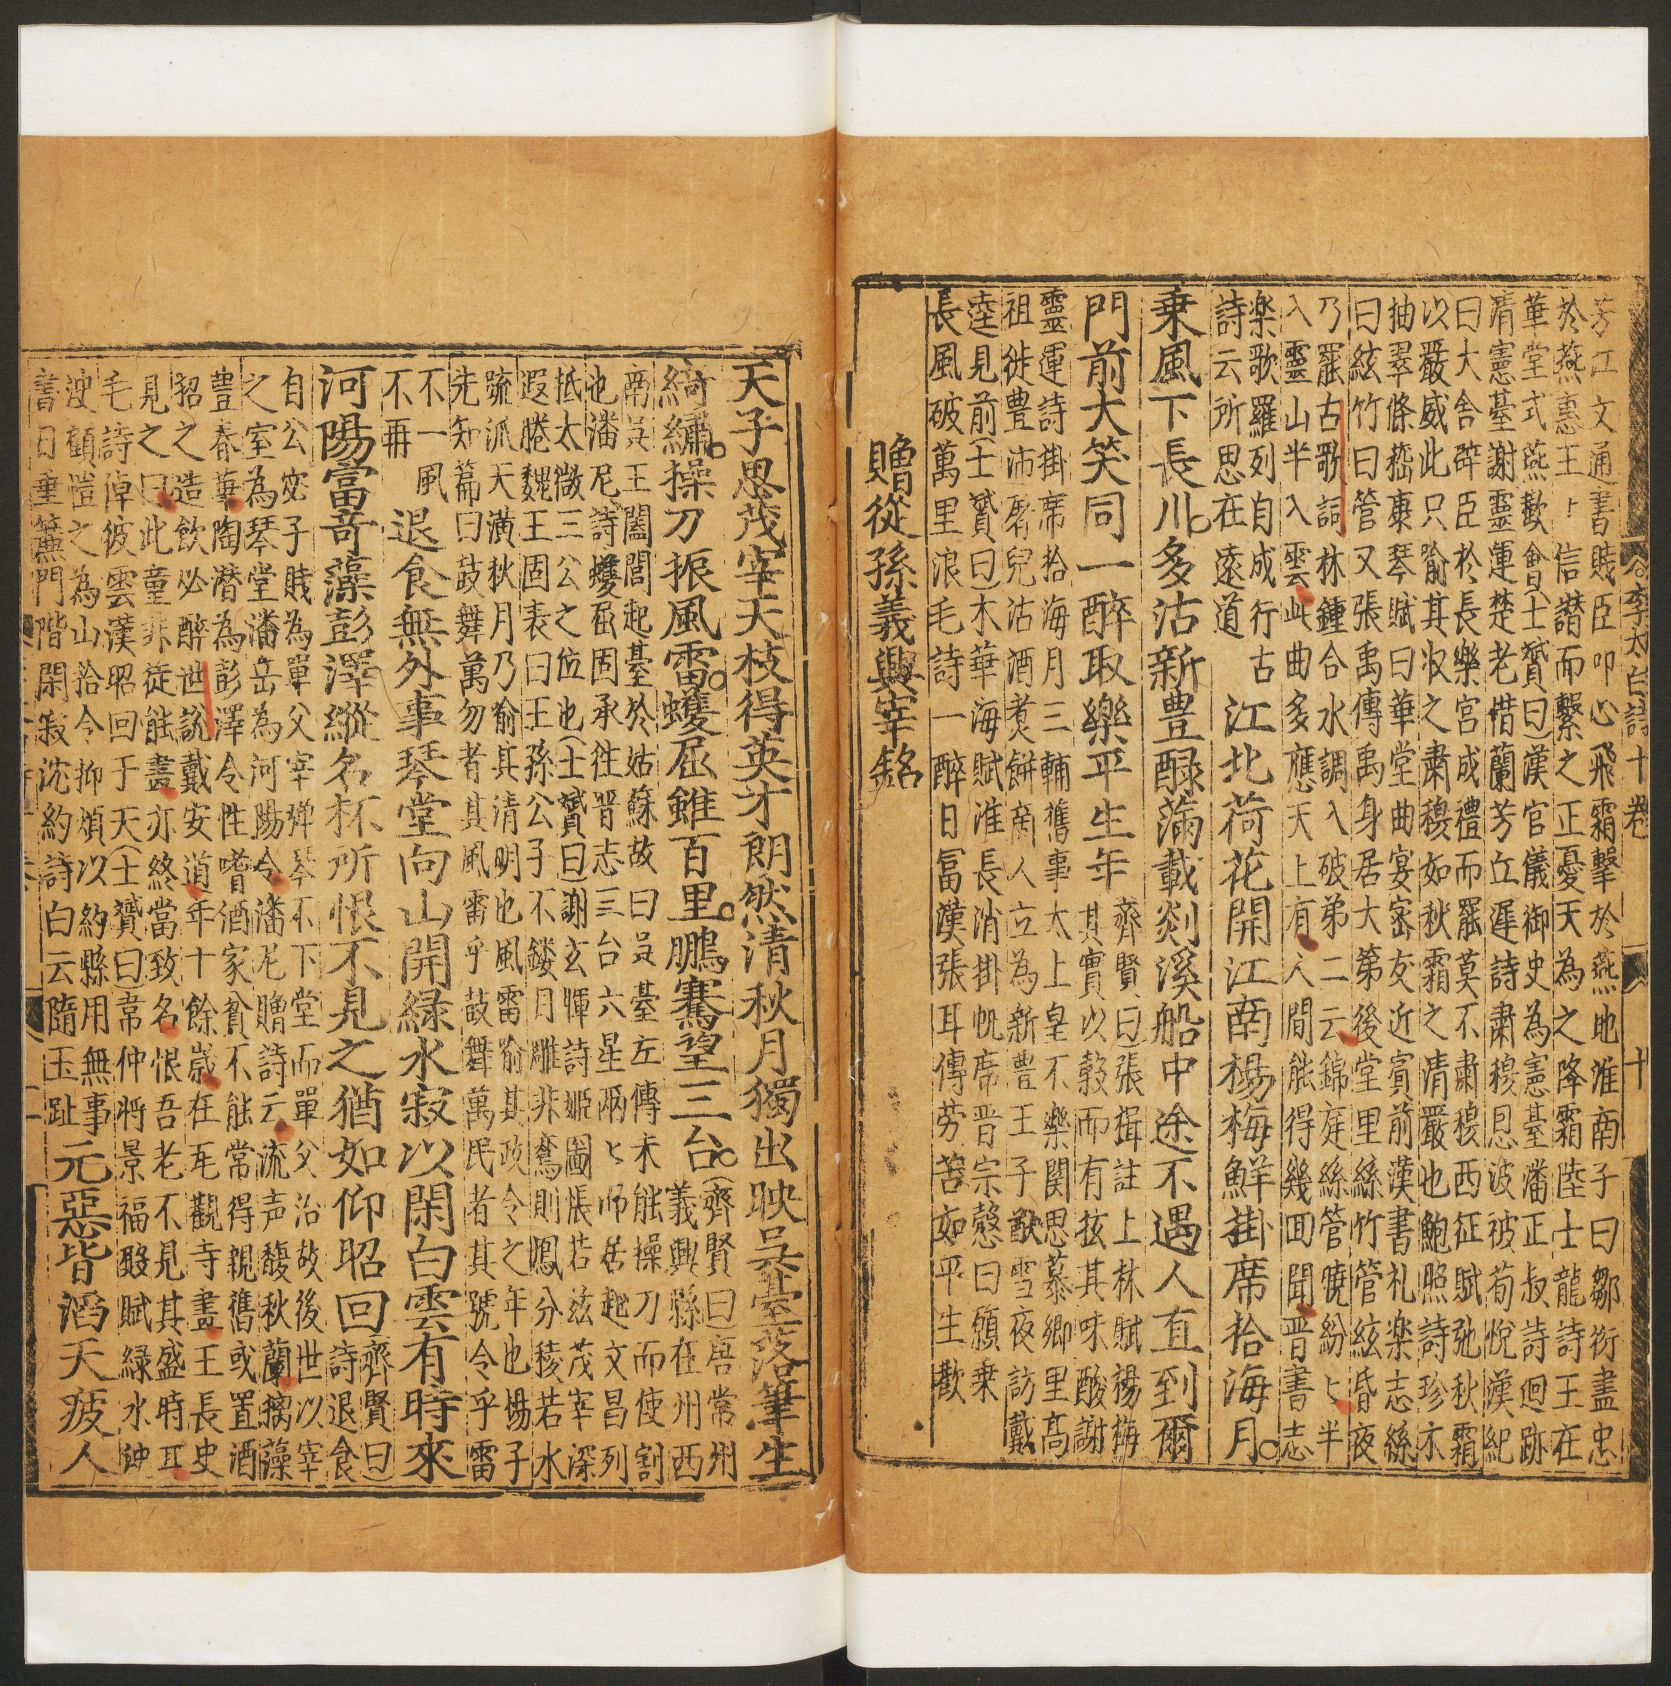 李太白詩十卷 十
芳江文通書賤臣叩心飛霜擊於燕地淮南子曰鄒衍盡忠
於燕惠王〻信譖而繫之正憂天為之降霜陸士龍詩王在
華堂式燕歡會士贇曰漢官儀御史為憲臺潘正叔詩迴跡
清憲臺謝靈運楚老惜蘭芳丘遲詩肅穆恩波被荀悅漢紀
曰大舍辟臣於長樂宮成禮而罷莫不肅穆西征賦弛秋霜
以嚴威此只喻其收之肅穆如秋霜之清嚴也鮑照詩珍木
抽翠條嵇康琴賦曰華堂曲宴密友近賓前漢書札楽志絲
曰絃竹曰管又張禹傳禹身居大第後堂里絲竹管絃昏夜
乃罷古歌詞林鍾合水調入破弟二云錦庭絲管曉紛〻半
入靈山半入雲此曲多應天上有人間能得幾回聞晋書志
楽歌羅列自成行古
詩云所思在遠道
江北荷花開江南楊梅鮮掛席拾海月
乗風下長川多沽新豊醁滿載剡溪船中途不遇人直到爾
門前大笑同一醉取樂平生年
齊賢曰張揖註上林賦楊梅
其實以穀而有㧓其味酸謝
靈運詩掛席拾海月三輔舊事太上皇不樂関思慕鄉里高
祖徙豊沛屠兒沽酒煑餅商人立為新豊王子猷雪夜訪戴
逵見前士贇曰木華海賦淮長消掛帆席晋宗愨曰願乗
長風破萬里浪毛詩一醉日冨漢張耳傳劳苦如平生歡
贈從孫義興宰銘
天子思茂宰天枝得英才朗然清秋月獨出映吳臺落筆生
綺繡操刀振風雷蠖屈雖百里鵬騫望三台
齊賢曰唐常州
義興縣在州西
南吳王闔閭起臺於姑蘇故曰吳臺左傳未能操刀而使割
也潘尼詩蠖屈固承往晋志三台六星兩〻而居起文昌列
抵太微三公之位也士贇曰謝玄暉詩姬圖悵若茲茂宰深
遐睠魏王固表曰王孫公子不鏤日雕非騖則鳳分稜若水
疏派天潢秋月乃喻其清明也風雷喻其政令之年也楊子
先知篇曰鼓舞萬勿者其風雷乎鼓舞萬民者其號令乎雷
不一風
不再
退食無外事琴堂向山開緑水寂以閑白雲有時來
河陽富竒藻彭澤縱名杯所恨不見之猶如仰昭回
齊賢曰
詩退食
自公宓子賤為單父宰弹琴不下堂而單父治故後世以宰
之室為琴堂潘岳為河陽令潘尼贈詩云流声馥秋蘭摛藻
豊春華陶潛為彭澤令性嗜酒家貧不能常得親舊或置酒
招之造飲必醉世說戴安道年十餘歲在瓦觀寺畫王長史
見之曰此童非徒能畫亦終當致名恨吾老不見其盛時耳
毛詩倬彼雲漢昭回于天士贇曰常仲将景福殿賦緑水浺
浊顧愷之為山拾令抑煩以約縣用無事
書日垂簾門階閑寂沈約詩白云隨玉趾
元惡皆滔天疲人